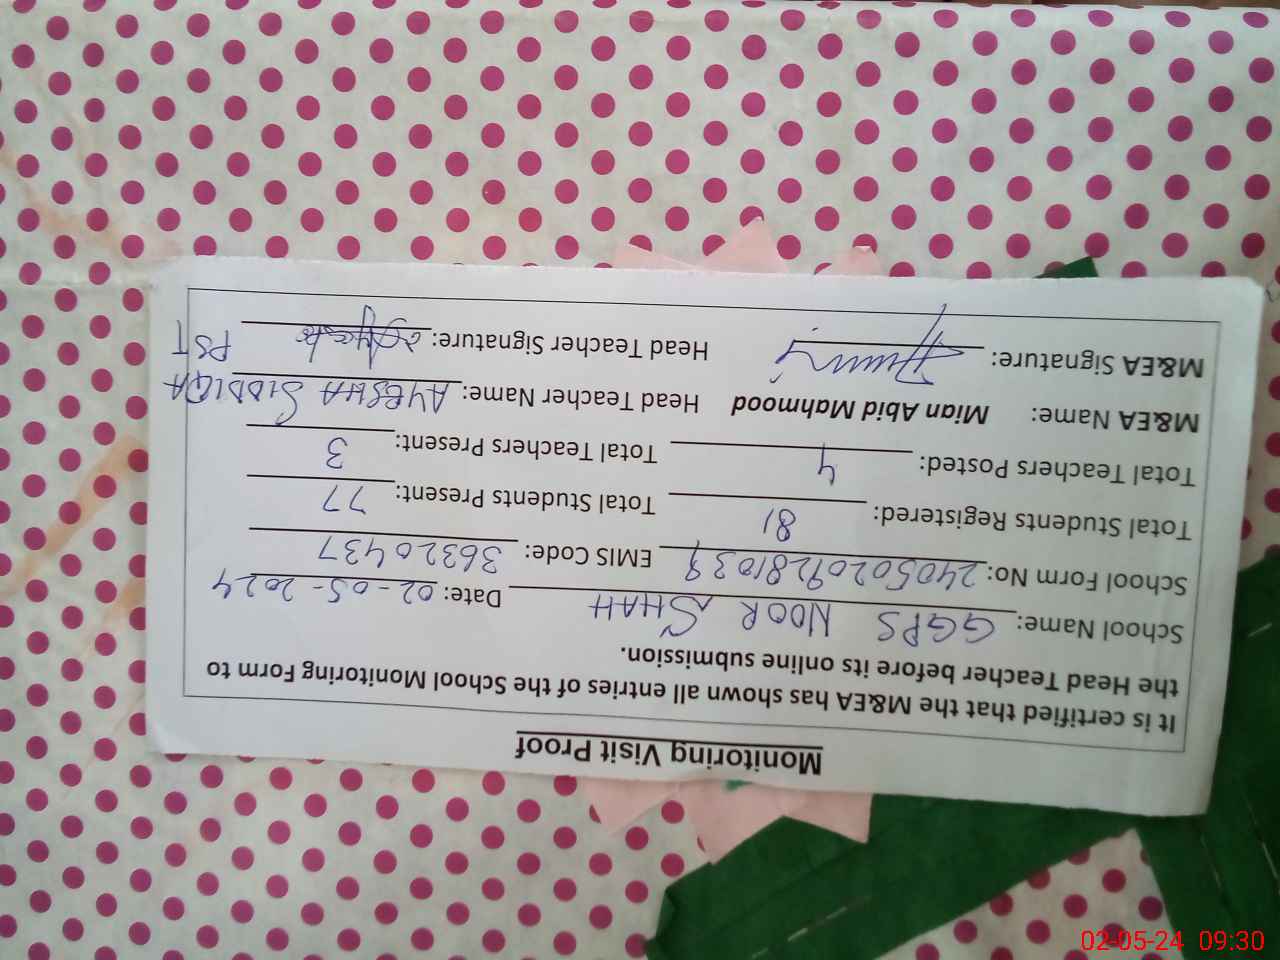 Monitoring Visit Proof
It is certified that the M&EA has shown all entries of the School Monitoring Form to
the Head Teacher before its online submission.
School Name: GGPS NOOR SHAH Date: 02-05-2024
School Form No: 24050209281039 EMIS Code: 36320437
Total Students Registered: 81 Total Students Present: 77
Total Teachers Posted: 4 Total Teachers Present: 3
M&EA Name: Mian Abid Mahmood Head Teacher Name: AYESHA SIDDIQA
M&EA Signature: Head Teacher Signature: PST
02-05-24 09:30